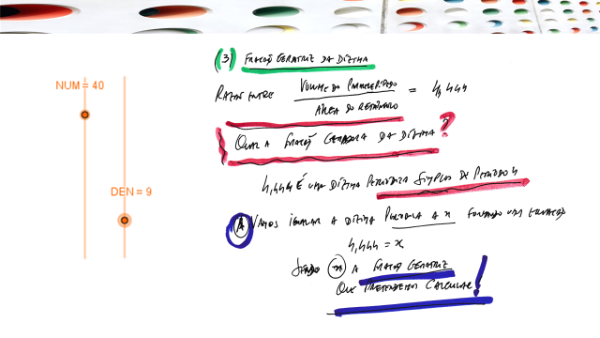 (3) FRAÇÃO GERATRIZ DA DÍZIMA
NUM = 40
RAZÃO ENTRE VOLUME DO PARALELEPÍPEDO = 4,444
ÁREA DO RETÂNGULO
QUAL A FRAÇÃO GERADORA DA DÍZIMA?
4,444 É UMA DÍZIMA PERIÓDICA SIMPLES DE PERÍODO 4
DEN = 9
(A) VAMOS IGUALAR A DÍZIMA PERIÓDICA A x FORMANDO UMA EQUAÇÃO
4,444 = x
SENDO (x) A FRAÇÃO GERATRIZ
QUE PRETENDEMOS CALCULAR!